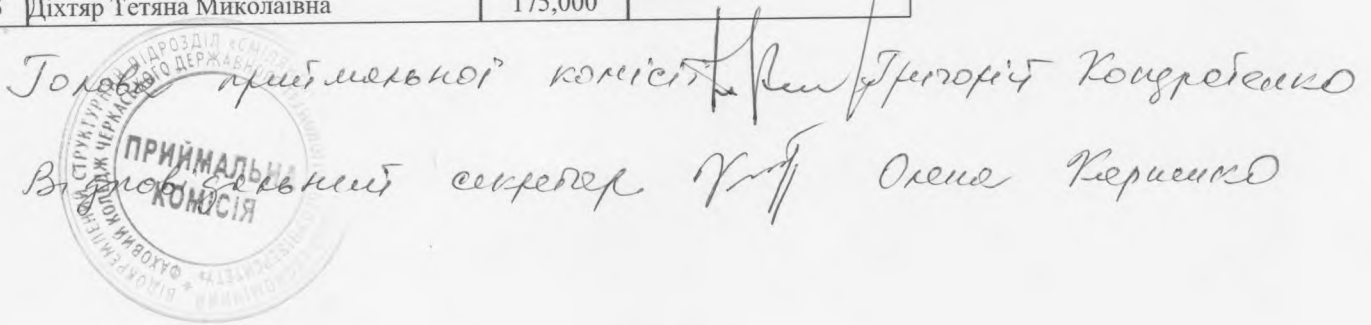 Діхтяр Тетяна Миколаївна 175,000
Голова приймальної комісії Григорій Кондратенко
Відповідальний секретар Олена
ВІДОКРЕМЛЕНИЙ СТРУКТУРНИЙ ПІДРОЗДІЛ
ФАХОВИЙ КОЛЕДЖ ЧЕРКАСЬКОГО ДЕРЖАВНОГО
ПРИЙМАЛЬНА
КОМІСІЯ